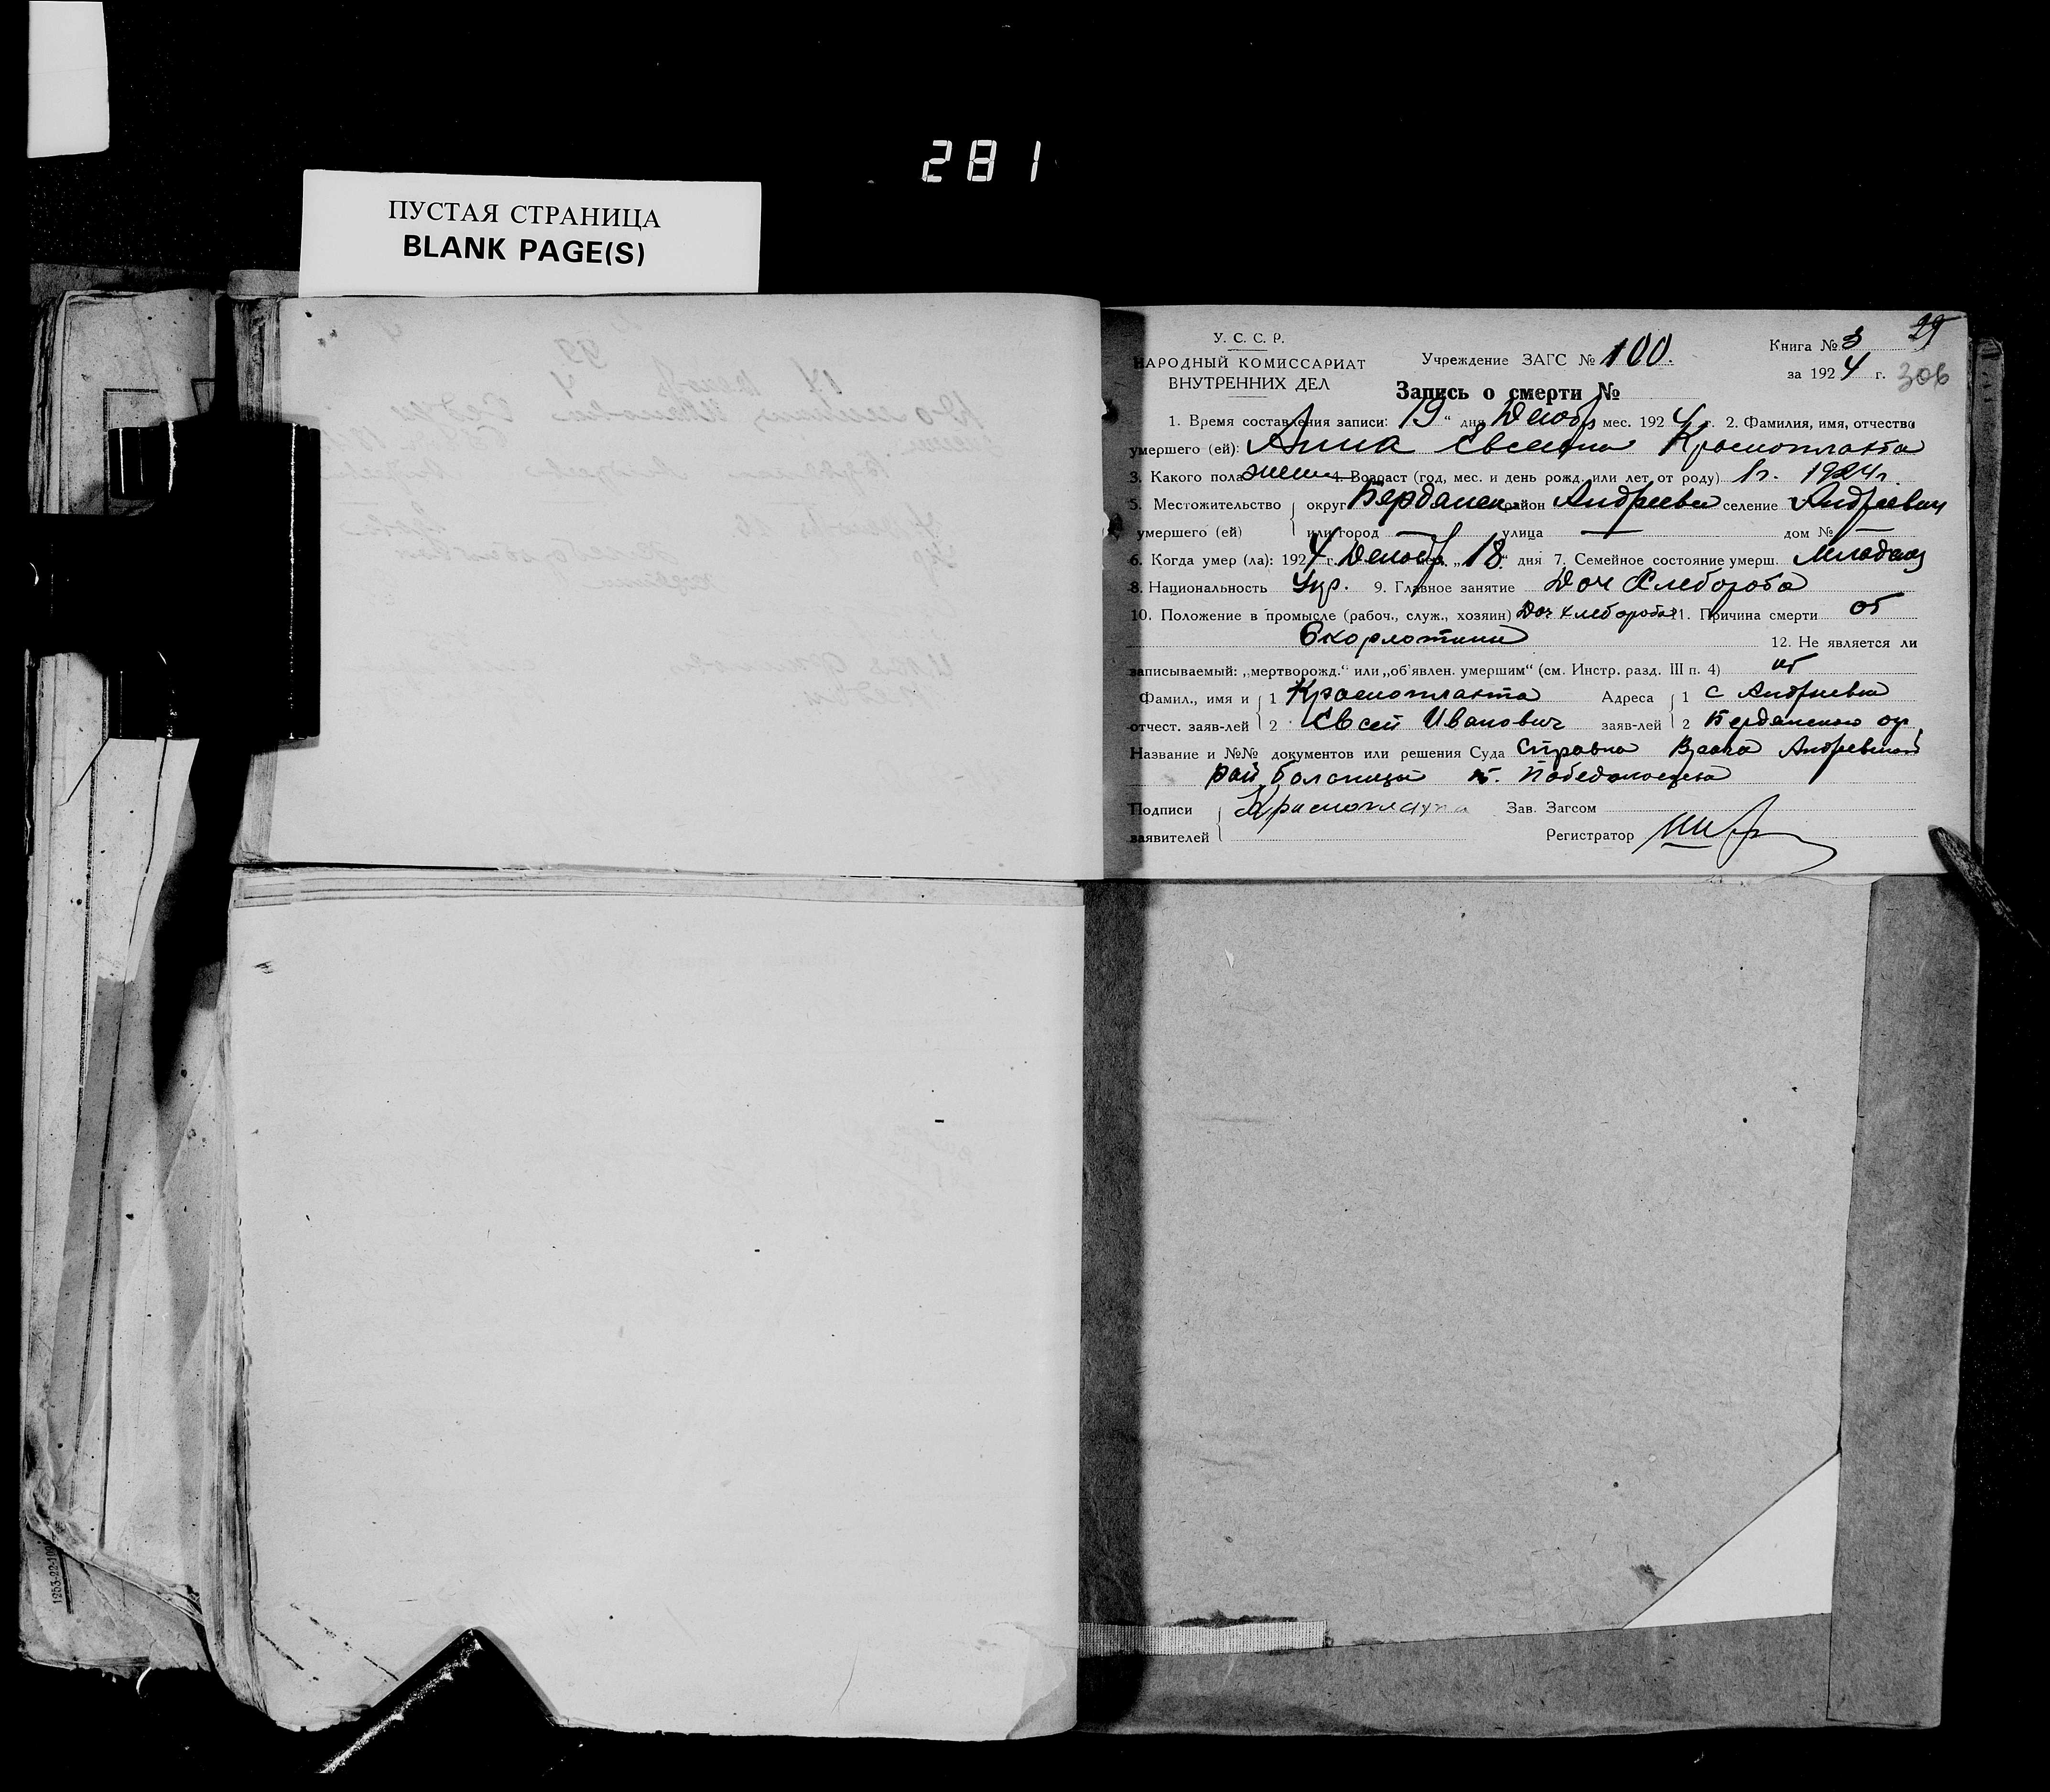 281
ПУСТАЯ СТРАНИЦА
BLANK PAGE(S)
У. С. С. Р.
НАРОДНЫЙ КОМИССАРИАТ
ВНУТРЕННИХ ДЕЛ
Учреждение ЗАГС № 100.
Книга № 3 99
за 1924 г. 306
Запись о смерти №
1. Время составления записи: 19 " дня Декабр мес. 1924 г. 2. Фамилия, имя, отчество
умершего (ей): Анна Евсеевна Красноплахта
3. Какого пола жен 4. Возраст (год, мес. и день рожд. или лет от роду) 1 г. 1924 г.
5. Местожительство округ Бердянск район Андреевка селение Андреевка
умершего (ей) или город — улица — дом № —
6. Когда умер (ла): 1924 г. Декабр мес. „18" дня 7. Семейное состояние умерш. Младенец
8. Национальность Укр. 9. Главное занятие Доч Хлебороба
10. Положение в промысле (рабоч., служ., хозяин) Доч хлебороба 11. Причина смерти от
Скорлотины 12. Не является ли
записываемый: „мертворожд." или „об'явлен. умершим" (см. Инстр. разд. III п. 4) нет
Фамил., имя и 1 Красноплахта Адреса 1 с Андреевка
отчест. заяв-лей 2 Евсей Иванович заяв-лей 2 Бердянского окр.
Название и №№ документов или решения Суда Справка Врача Андреевской
рай больницы
Подписи Красноплахта Зав. Загсом
заявителей Регистратор
1253-22-10